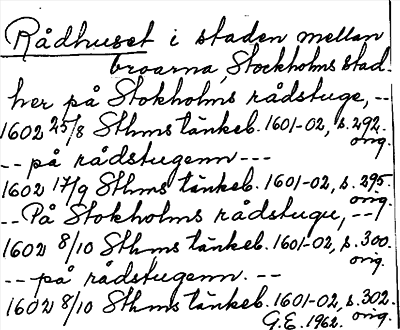 Rådhuset i staden mellan
broarna, Stockholms stad.
her på Stokholms rådstuge, --
1602 25/8 Sthms tänkeb. 1601-02, s. 292.
orig.
-- på rådstugenn ---
1602 17/9 Sthms tänkeb. 1601-02, s. 295.
orig.
-- På Stokholms rådstugu, --
1602 8/10 Sthms tänkeb. 1601-02, s. 300.
orig.
-- på rådstugenn. --
1602 8/10 Sthms tänkeb. 1601-02, s. 302.
orig.
G.E. 1962.